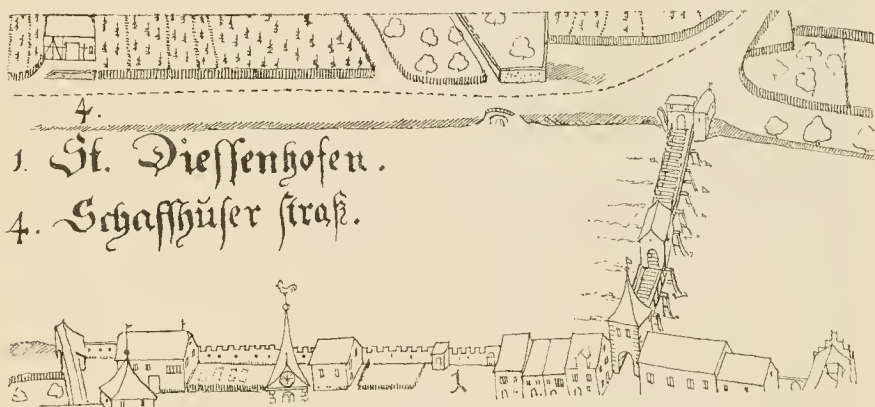 4.
1. St. Diessenhofen.
4. Schaffhuser straß.
1.